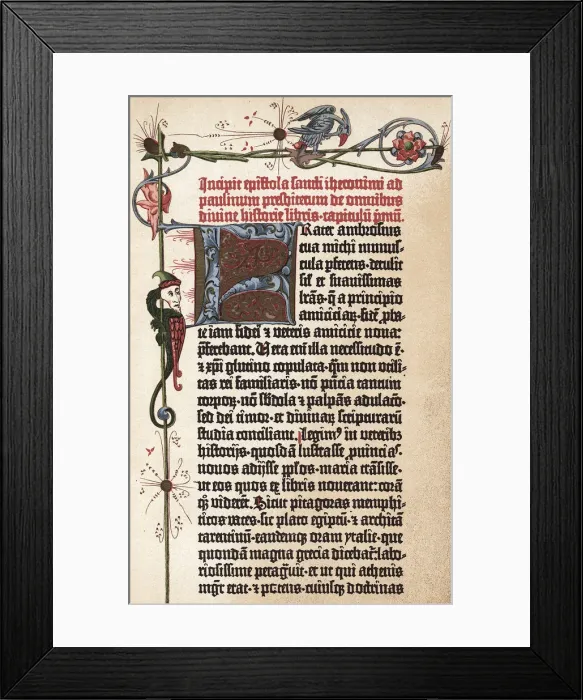 Incipit epistola sancti iheronimi ad
paulinum presbiterum de omnibus
divine historie libris · capitulū p̄mū.
Frater ambrosius
tua michi munus-
cula ꝑferens · detulit
sił et suavissimas
lrās · q̄ a principio
amiciciaꝝ · fidē ꝓba-
te iam fidei ⁊ veteris amicicie nova:
ꝑferebant. Vera eni̅ illa necessitudo ē·
⁊ xp̄i glutino copulata · qm̄ non utili-
tas rei familiaris · nō p̄ncia tantum
corpoꝝ · nō sb̄dola ⁊ palpās adulaco̅·
sed dei timor · et divinaꝝ scripturarū
studia conciliant. legimꝰ in veteribꝫ
historijs · quosdā lustrasse ꝓuincias·
novos adijsse ꝑplos · maria trāsisse·
ut eos quos ex libris noverant: corā
qꝫ viderēt. Sicut pitagoras memphi-
ticos vates · sic plato egiptū · ⁊ architā
tarentinū · eandemqꝫ oram ytalie · que
quondā magna grecia dicebat̄: labo-
riosissime peragͥuit · et ut qui athenis
mgr̄ erat · ⁊ potens · cuiusqꝫ doctrinas